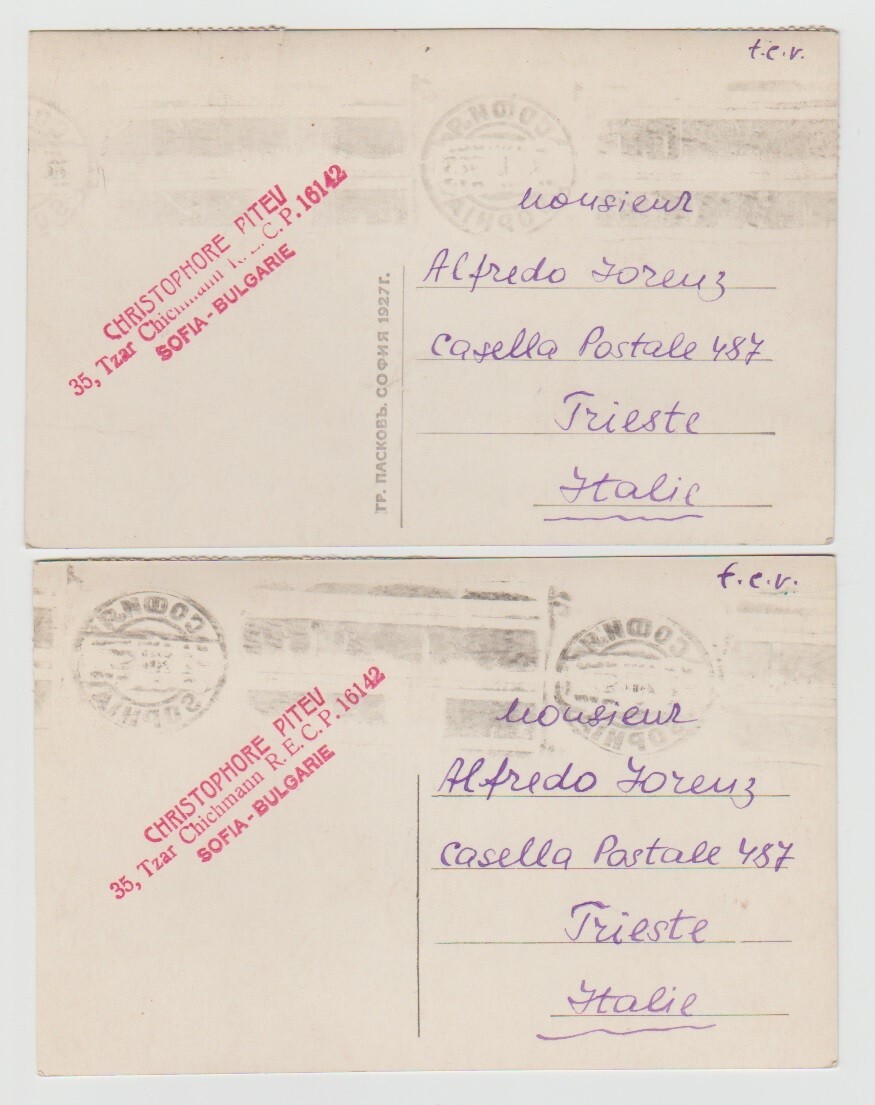 t.c.v.
СОФИЯ
SOPHIA
CHRISTOPHORE PITEV
35, Tzar Chichmann R.E.C.P. 16142
SOFIA - BULGARIE
ГР. ПАСКОВЪ. СОФИЯ 1927Г.
Monsieur
Alfredo Lorenz
Casella Postale 487
Trieste
Italie
t.c.v.
СОФИЯ
SOPHIA
СОФИЯ
SOPHIA
CHRISTOPHORE PITEV
35, Tzar Chichmann R.E.C.P. 16142
SOFIA - BULGARIE
Monsieur
Alfredo Lorenz
Casella Postale 487
Trieste
Italie